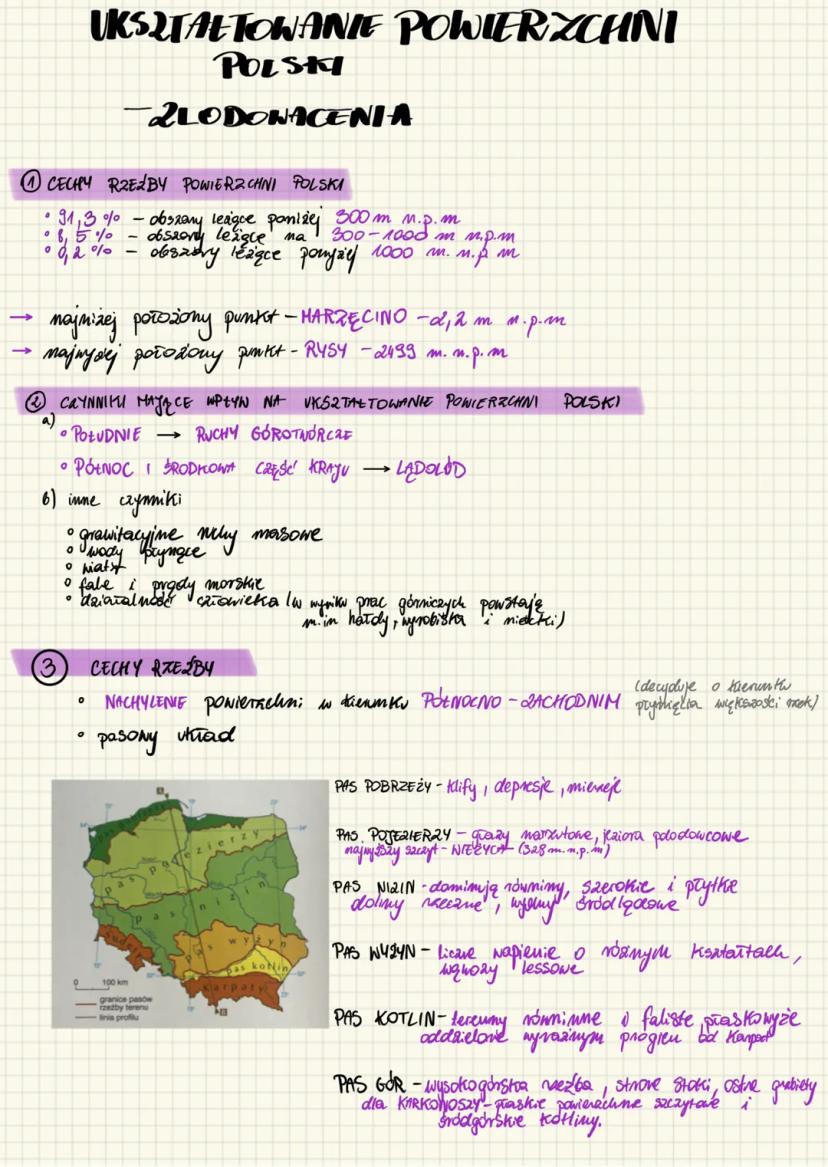 UKSZTAŁTOWANIE POWIERZCHNI
POLSKI
- ZLODOWACENIA
① CECHY RZEŹBY POWIERZCHNI POLSKI
• 91,3 % - obszary leżące poniżej 300 m n.p.m
• 8,5 % - obszary leżące na 300-1000 m n.p.m
• 0,2 % - obszary leżące powyżej 1000 m. n.p m
→ najniżej położony punkt - MARZĘCINO -2,2 m n.p.m
→ najwyżej położony punkt - RYSY - 2499 m. n.p.m
② CZYNNIKI MAJĄCE WPŁYW NA UKSZTAŁTOWANIE POWIERZCHNI POLSKI
a)
• POŁUDNIE → RUCHY GÓROTWÓRCZE
• PÓŁNOC I ŚRODKOWA CZĘŚĆ KRAJU → LĄDOLÓD
b) inne czynniki
• grawitacyjne ruchy masowe
• wody płynące
• wiatr
• fale i prądy morskie
• działalność człowieka (w wyniku prac górniczych powstają
m.in hałdy, wyrobiska i niecki)
③ CECHY RZEŹBY
• NACHYLENIE powierzchni w kierunku PÓŁNOCNO - ZACHODNIM (decyduje o kierunku
płynięcia większości rzek)
• pasowy układ
PAS POBRZEŻY - klify, depresje, mierzeje
PAS POJEZIERZY - głazy narzutowe, jeziora polodowcowe
najwyższy szczyt - WIEŻYCA (328 m.n.p.m)
PAS NIZIN - dominują równiny, szerokie i płytkie
doliny rzeczne, wydmy śródlądowe
PAS WYŻYN - liczne wapienie o różnym kształtach,
wąwozy lessowe
PAS KOTLIN - tereny równinne i faliste, płaskowyże
oddzielone wyraźnym progiem od Karpat
PAS GÓR - wysokogórska rzeźba, strome stoki, ostre grabiety
dla KARKONOSZY - płaskie powierzchnie szczytowe i
śródgórskie kotliny.
A
pas pobrzeży
pas pojezierzy
pas nizin
pas wyżyn
Sudety
pas kotlin
Karpaty
B
0 100 km
granice pasów
rzeźby terenu
linia profilu